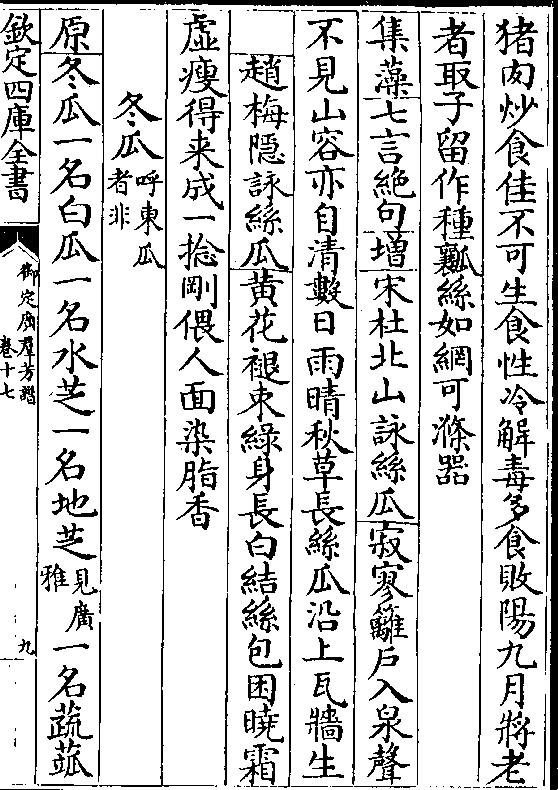 猪肉炒食佳不可生食性冷解毒多食敗陽九月將老
者取子留作種瓤絲如網可滌器
集藻七言絶句增宋杜北山詠絲瓜寂寥籬户入泉聲
不見山容亦自清數日雨晴秋草長絲瓜沿上瓦牆生
趙梅隠詠絲瓜黄花褪束緑身長白結絲包困曉霜
虚瘦得来成一捻剛偎人面染脂香
冬瓜呼東瓜者非
原冬瓜一名白瓜一名水芝一名地芝見廣雅一名蔬蓏
欽定四庫全書
御定廣羣芳譜
卷十七
九